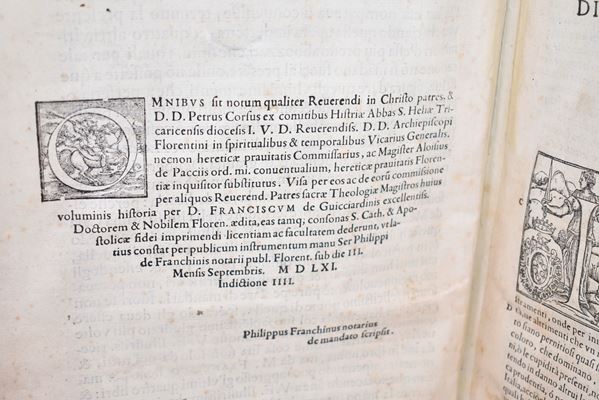 OMNIBVS sit notum qualiter Reuerendi in Christo patres. &
D. D. Petrus Corsus ex comitibus Histriæ Abbas S. Heliæ Tri-
caricensis diocesis I. V. D. Reuerendiss. D. D. Archiepiscopi
Florentini in spiritualibus & temporalibus Vicarius Generalis.
necnon hereticæ prauitatis Commissarius, ac Magister Aloisius
de Pacciis ord. mi. conuentualium, hereticæ prauitatis Floren-
tiæ inquisitor substitutus. Visa per eos ac de eorũ commissione
per aliquos Reuerend. Patres sacræ Theologiæ Magistros huius
voluminis historia per D. FRANCISCVM de Guicciardinis excellentiss.
Doctorem & Nobilem Floren. ædita, eas tamq; consonas S. Cath. & Apo-
stolicæ fidei imprimendi licentiam ac facultatem dederunt, vt la-
tius constat per publicum instrumentum manu Ser Philippi
de Franchinis notarii publ. Florent. sub die III.
Mensis Septembris. M D LXI.
Indictione IIII.
Philippus Franchinus notarius
de mandato scripsit.
DI
strumenti, onde per in
siano pernitiosi quasi s
coloro, che dominano